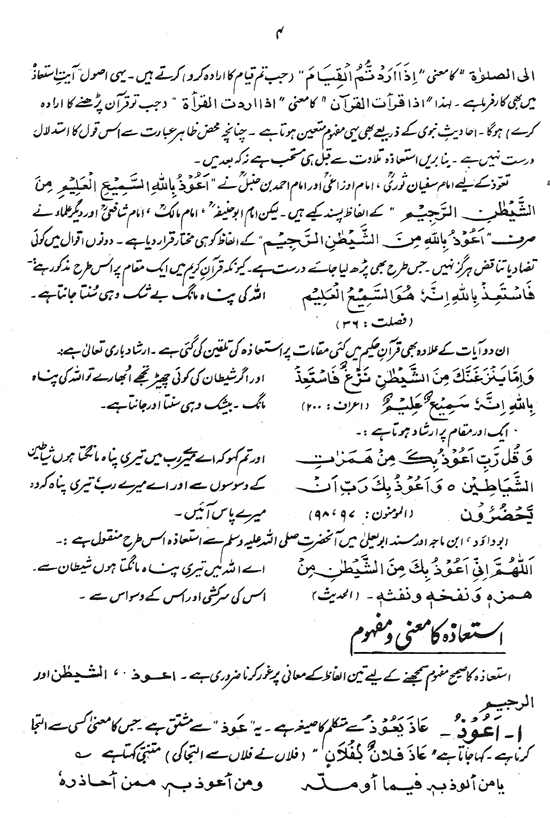 ۴
الی الصلوٰۃ" کا معنی "اِذَا اَرَدْتُّمُ الْقِیَامَ" (جب تم قیام کا ارادہ کرو) کرتے ہیں۔ یہی اصول آیتِ استعاذہ
میں بھی کارفرما ہے۔ لہٰذا "اِذَا قَرَأتَ القُرآن" کا معنی "اِذَا اَرَدتَ القرأۃ" (جب تو قرآن پڑھنے کا ارادہ
کرے) ہوگا۔ احادیثِ نبوی کے ذریعے بھی یہی مفہوم متعین ہوتا ہے۔ چنانچہ محض ظاہر عبارت سے اس قول کا استدلال
درست نہیں ہے۔ بنابریں استعاذہ تلاوت سے قبل ہی مستحب ہے نہ کہ بعد میں۔
تعوّذ کے لیے امام سفیان ثوریؒ، امام اوزاعیؒ اور امام احمد بن حنبلؒ نے "اَعُوْذُ بِاللهِ السَّمِیْعِ الْعَلِیْمِ مِنَ
الشَّیْطٰنِ الرَّجِیْمِ" کے الفاظ پسند کیے ہیں۔ لیکن امام ابوحنیفہؒ، امام مالکؒ، امام شافعیؒ اور دیگر علماء نے
صرف "اَعُوْذُ بِاللهِ مِنَ الشَّیْطٰنِ الرَّجِیْمِ" کے الفاظ کو ہی مختار قرار دیا ہے۔ دونوں اقوال میں کوئی
تضاد یا تناقض ہرگز نہیں۔ جس طرح بھی پڑھ لیا جائے درست ہے۔ کیونکہ قرآن کریم میں ایک مقام پر اس طرح مذکور ہے:-
فَاسْتَعِذْ بِاللهِ اِنَّهٗ هُوَ السَّمِیْعُ الْعَلِیْمُ اللہ کی پناہ مانگ بے شک وہی سُنتا جانتا ہے۔
(فصلت : ۳۶)
ان دو آیات کے علاوہ بھی قرآنِ حکیم میں کئی مقامات پر استعاذہ کی تلقین کی گئی ہے۔ ارشاد باری تعالیٰ ہے:
وَاِمَّا یَنْزَغَنَّكَ مِنَ الشَّیْطٰنِ نَزْغٌ فَاسْتَعِذْ اور اگر شیطان کی کوئی چھیڑ تجھے اُبھارے تو اللہ کی پناہ
بِاللهِ اِنَّهٗ سَمِیْعٌ عَلِیْمٌ (اعراف: ۲۰۰) مانگ۔ بیشک وہی سنتا اور جانتا ہے۔
ایک اور مقام پر ارشاد ہوتا ہے:-
وَقُلْ رَّبِّ اَعُوْذُ بِكَ مِنْ هَمَزٰتِ اور تم کہو کہ اے میرے رب میں تیری پناہ مانگتا ہوں شیاطین
الشَّیَاطِیْنِ ٥ وَاَعُوْذُ بِكَ رَبِّ اَنْ کے وسوسوں سے اور اے میرے رب تیری پناہ کہ وہ
یَّحْضُرُوْنِ (المؤمنون: ۹۷، ۹۸) میرے پاس آئیں۔
ابوداؤد، ابن ماجہ اور مسند ابویعلیٰ میں آنحضرت صلی اللہ علیہ وسلم سے استعاذہ اس طرح منقول ہے:-
اَللّٰهُمَّ اِنِّیْ اَعُوْذُ بِكَ مِنَ الشَّیْطٰنِ مِنْ اے اللہ میں تیری پناہ مانگتا ہوں شیطان سے۔
همزهٖ وَنفخهٖ ونفثهٖ۔ (الحدیث) اس کی سرکشی اور اس کے وسواس سے۔
استعاذہ کا معنی و مفہوم
استعاذہ کا صحیح مفہوم سمجھنے کے لیے تین الفاظ کے معانی پر غور کرنا ضروری ہے۔ اعوذ، الشیطٰن اور
الرجیم
۱۔ اَعُوْذُ۔ عَاذَ یَعُوْذُ سے متکلم کا صیغہ ہے۔ یہ "عَوذ" سے مشتق ہے۔ جس کا معنٰی کسی سے التجا
کرنا ہے۔ کہا جاتا ہے "عَاذَ فلانٌ بِفُلَانٍ" (فلاں نے فلاں سے التجا کی) متنبّی کہتا ہے
یامن الوذ بهٖ فیما اُوملهٗ ومن اعوذ بهٖ ممن احاذرهٗ